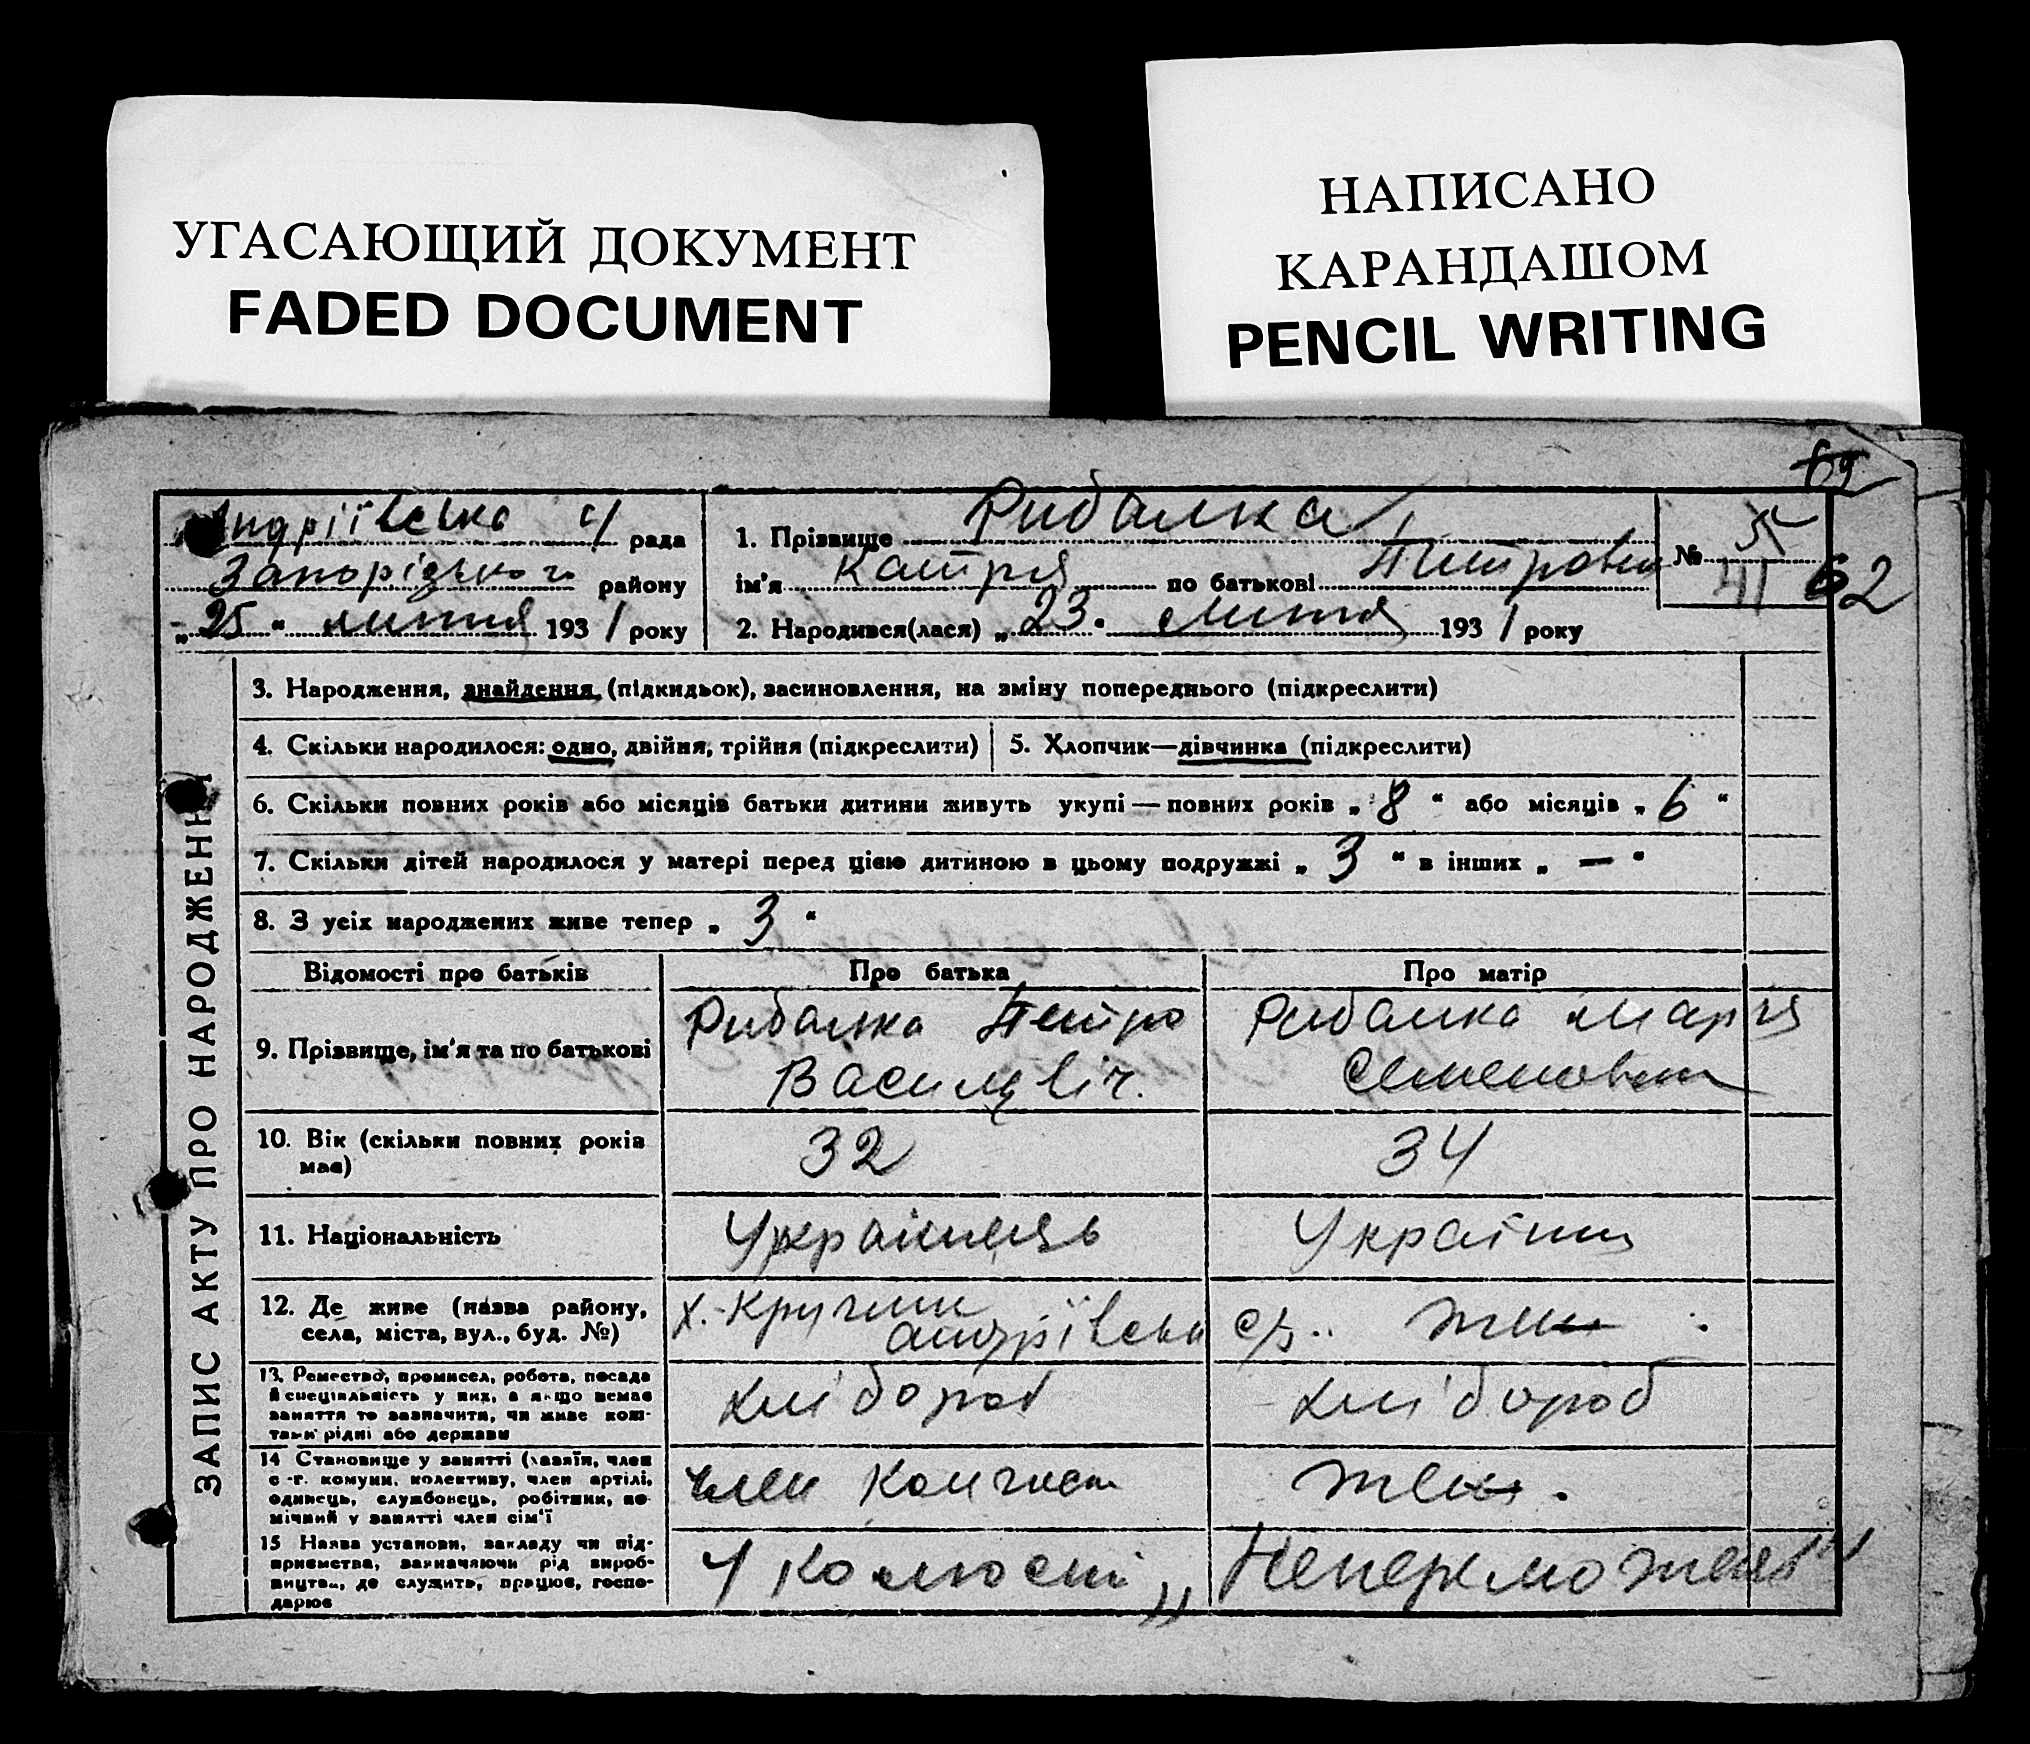 УГАСАЮЩИЙ ДОКУМЕНТ
FADED DOCUMENT
НАПИСАНО
КАРАНДАШОМ
PENCIL WRITING
69
Андріївська с/ рада
Запорізького району
„25“ лютня 1931 року
1. Прізвище Рибалка
ім'я Катря по батькові Петровна
2. Народився(лася) „23“ лютня 1931 року
№
41
62
ЗАПИС АКТУ ПРО НАРОДЖЕННЯ
3. Народження, знайдення (підкидьок), засиновлення, на зміну попереднього (підкреслити)
4. Скільки народилося: одно, двійня, трійня (підкреслити)
5. Хлопчик—дівчинка (підкреслити)
6. Скільки повних років або місяців батьки дитини живуть укупі — повних років „8“ або місяців „6“
7. Скільки дітей народилося у матері перед цією дитиною в цьому подружжі „3“ в інших „—“
8. З усіх народжених живе тепер „3“
Відомості про батьків
Про батька
Про матір
9. Прізвище, ім'я та по батькові
Рибалка Петро
Василівіч.
Рибалка Марія
Семеновна
10. Вік (скільки повних років
має)
32
34
11. Національність
Українець
Українка
12. Де живе (назва району,
села, міста, вул., буд. №)
х.
Андріївськ
с/р.. теж
13. Ремество, промисел, робота, посада
й спеціяльність у них, а якщо немає
заняття то зазначити, чи живе кош-
тами рідні або держави
хлібороб
хлібороб
14 Становище у занятті (хазяїн, член
с.-г. комуни, колективу, член артілі,
одинець, службовець, робітник, по-
мічний у занятті член сім'ї
член
теж.
15 Назва установи, закладу чи під-
приємства, зазначаючи рід вироб-
ництва, де служить, працює, госпо-
дарює
У
„